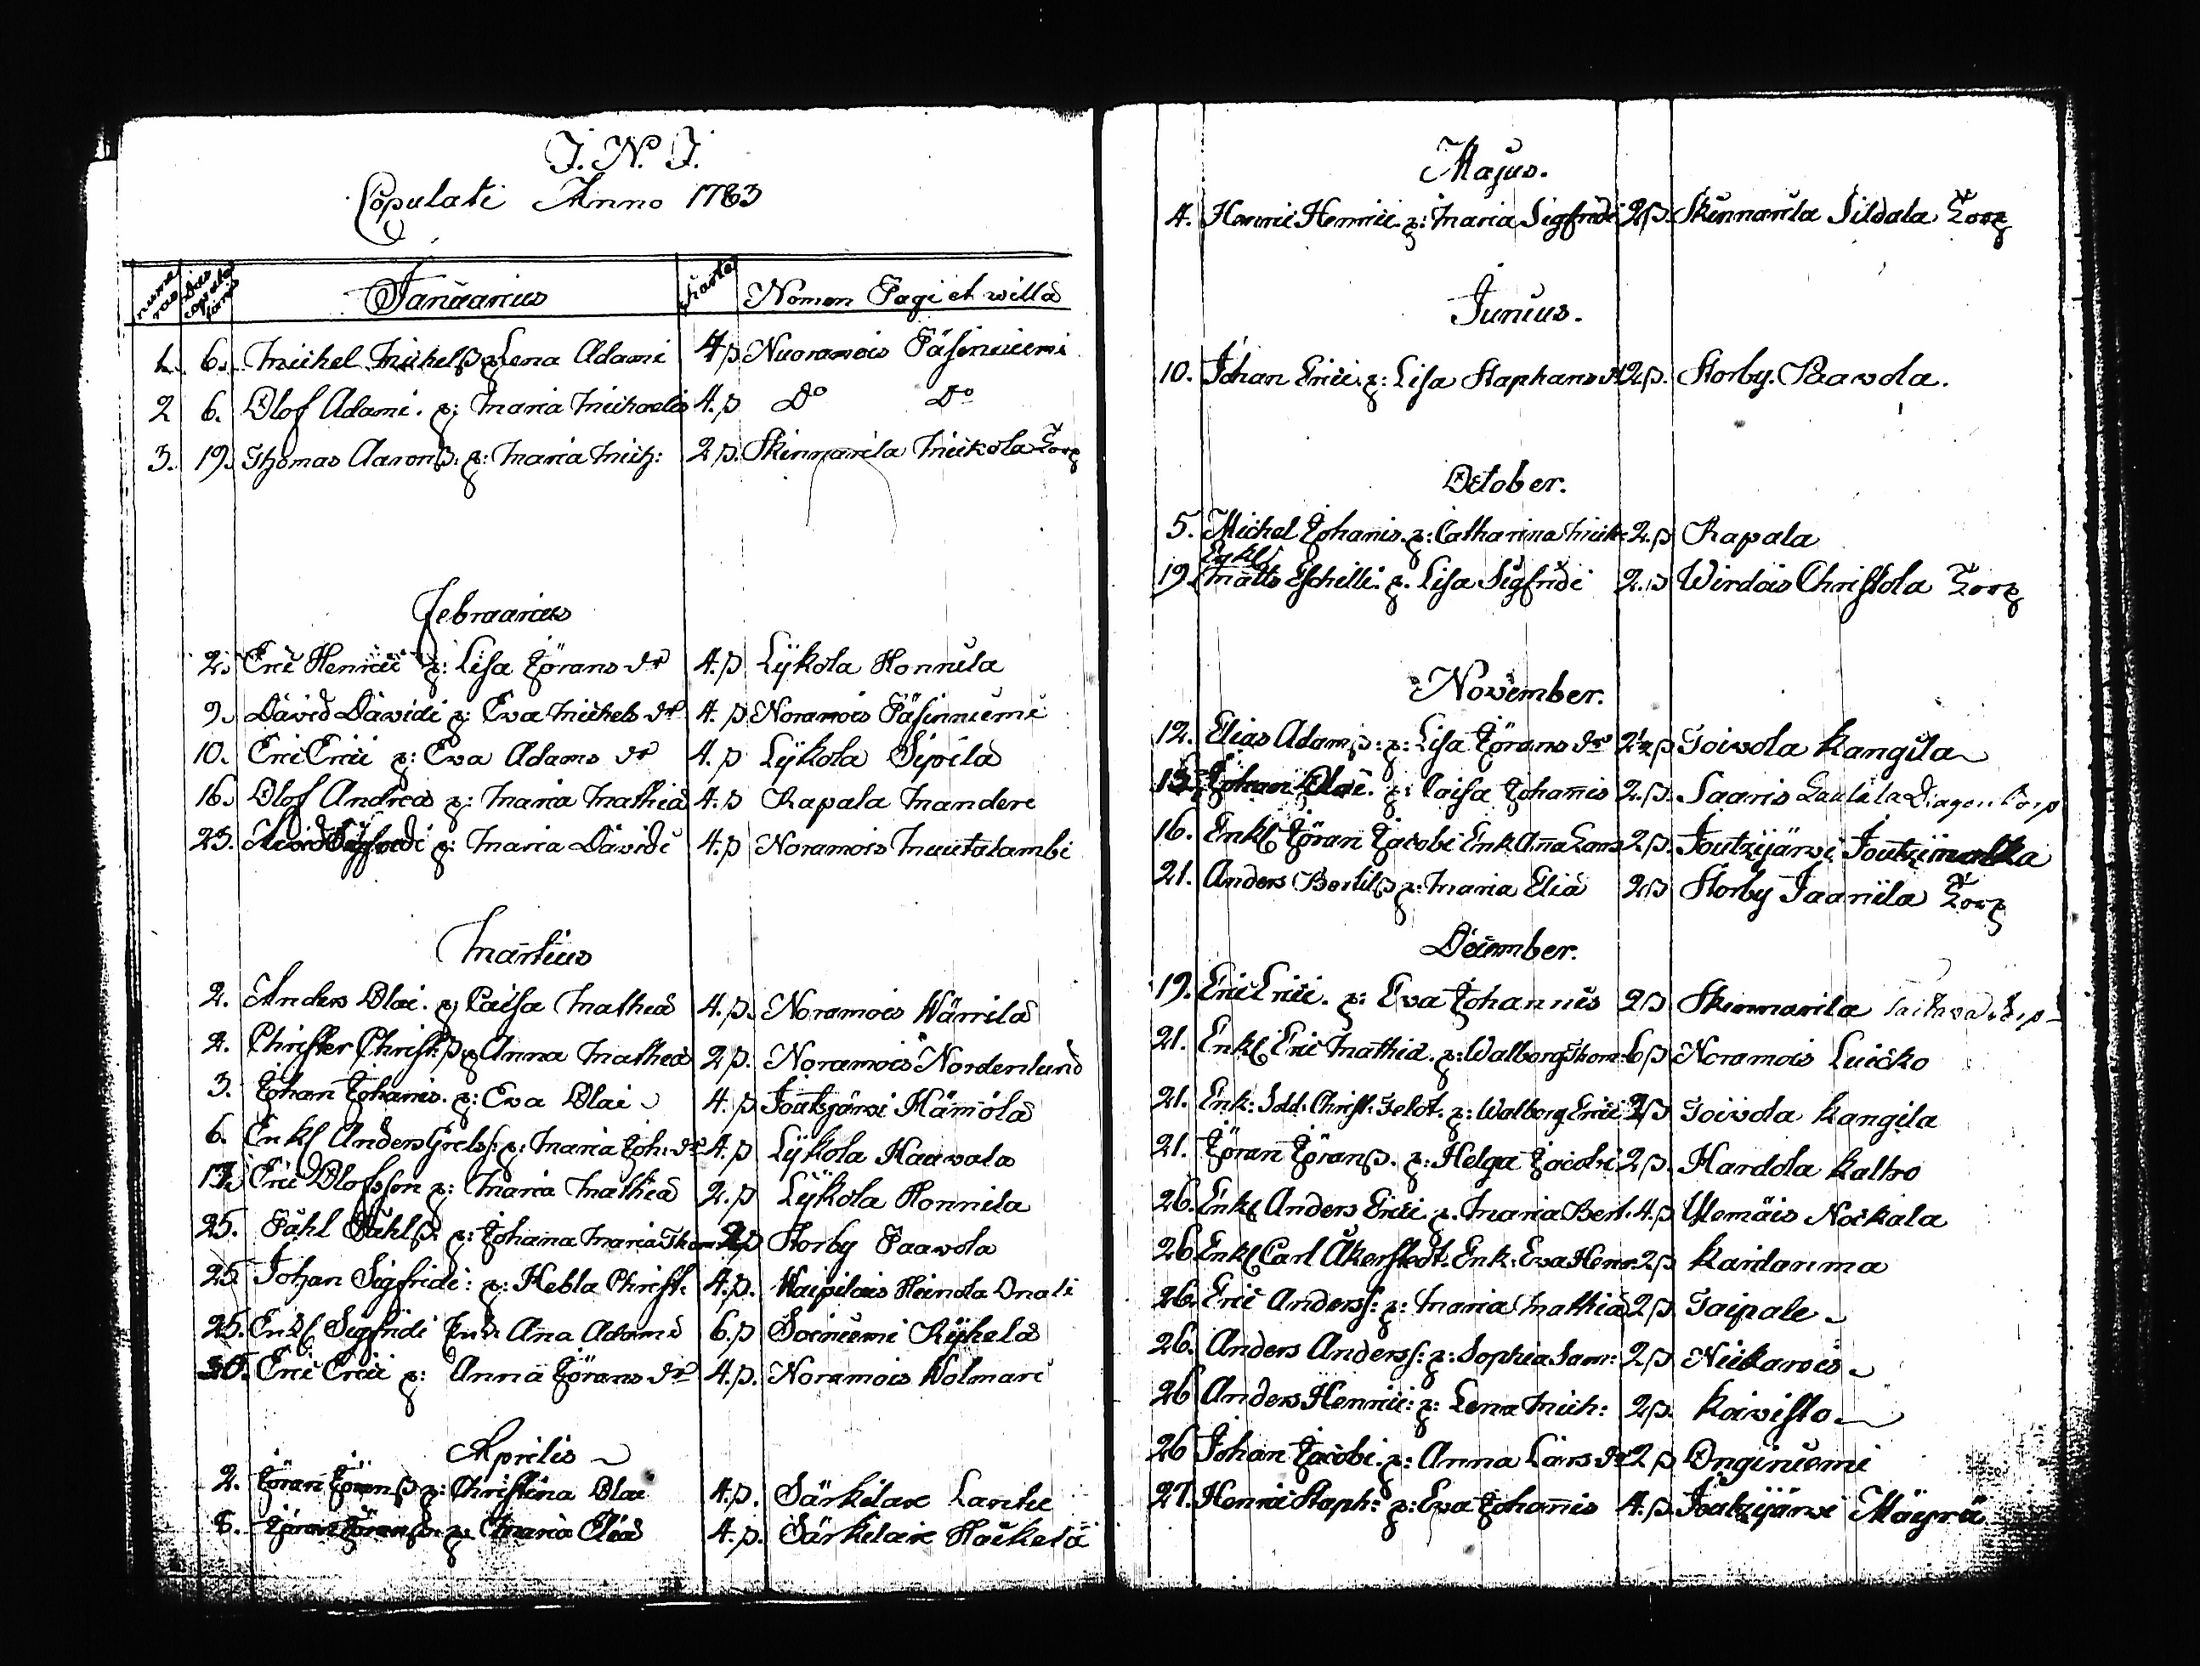 J. N. J.
Copulati Anno 1783
numerus Dies copulationis Januarius charta Nomen Pagi et villa
1. 6. Michel Michelss. p: Lena Adami 4 p Nuoramois Päsiniemi
2 6. Olof Adami. p: Maria Michaelis 4. p Do Do
3. 19. Thomas Aaronss. p: Maria Mich: 2 p. Skinnarila Mickola Torp
Februarius
2. Eric Henrici p: Lisa Jörans dr 4. p Lÿkola Honnila
9. David Davidi p: Eva Michels dr 4. p Noramois Päsinniemi
10. Eric Erici p: Eva Adams dr 4. p Lÿkola Sipilä
16. Olof Andreæ p: Maria Mathiæ 4. p Rapala Manderi
23. p: Maria Davidi 4. p Noramois
Martius
2. Anders Olai. p: Caisa Matheæ 4. p. Noramois Wärrilä
2. Christer Christ: p Anna Matheæ 2 p. Noramois Nordenlund
3. Johan Johanis. p: Eva Olai 4. p Joutsjärvi Hämölä
6. Enkl Anders Grels: p: Maria Joh: dr 4. p Lÿkola Haavala
17. Eric Olofsson p: Maria Mathiæ 2. p Lÿkola Honnila
25. Påhl Påhlss. p: Johana Maria Thom 2 p Storby Paavola
25 Johan Sigfridi: p: Hebla Christ: 4. p. Kaipilais Heinola Onali
25. Enkl Sigfridi Enk. Aña Adami 6. p Soiniemi Rÿhelä
30. Eric Erici p: Anna Jörans dr 4. p. Noramois Wolmari
Aprilis
2. Jöran Jöranss p: Christina Olai 4. p. Särkilax Lanki
8. Jöran Jöranss. p: Maria Eliæ 4. p. Särkilax Håckelä
Majus.
4. Henric Henrici p: Maria Sigfridi 2 p. Skinnarila Sildala Torp
Junius.
10. Johan Erici p: Lisa Staphans dr 2 p. Storby. Paavola.
October.
5. Michel Johanis. p: Catharina Mich: 2. p Rapala
Enkl
19. Matts Eschilli. p. Lisa Sigfridi 2. p Wirdois Christola Torp
November.
12. Elias Adamss: p: Lisa Jörans dr 2 p Toivola Kangila
15. Johan Olai. p: Caisa Johañis 2. p. Saaris Dragon torp
16. Enkl Jöran Jacobi Enk Aña Lars 2 p. Joutzijärvi Joutzimatka
21. Anders Bertilss p: Maria Eliæ 2 p Storby Jaanila Torp
December.
19. Eric Erici. p: Eva Johannis 2 p Skinnarila
21. Enkl Eric Mathiæ. p: Walborg Thom: 6 p Noramois Luicko
21. Enk: Sold: Christ: p: Walborg Erici 2 p Toivola Kangila
21. Jöran Jöranss. p: Helga Jacobi 2 p. Kardola Kalho
26. Enkl Anders Erici p. Maria Bert. 4. p Ylemäis Nockala
26 Enkl Carl Åkerstedt. Enk: Eva Henr: 2 p Kaidanma
26. Eric Anderss: p: Maria Mathiæ 2 p. Taipale
26. Anders Anderss: p: Sophia Sam: 2 p. Nickarois
26 Anders Henrici: p: Lena Mich: 2 p. Koivisto
26 Johan Jacobi. p: Anna Lars dr 2 p Onginiemi
27. Henric Staph: p: Eva Johañis 4. p. Joutzijärvi Mäyrä